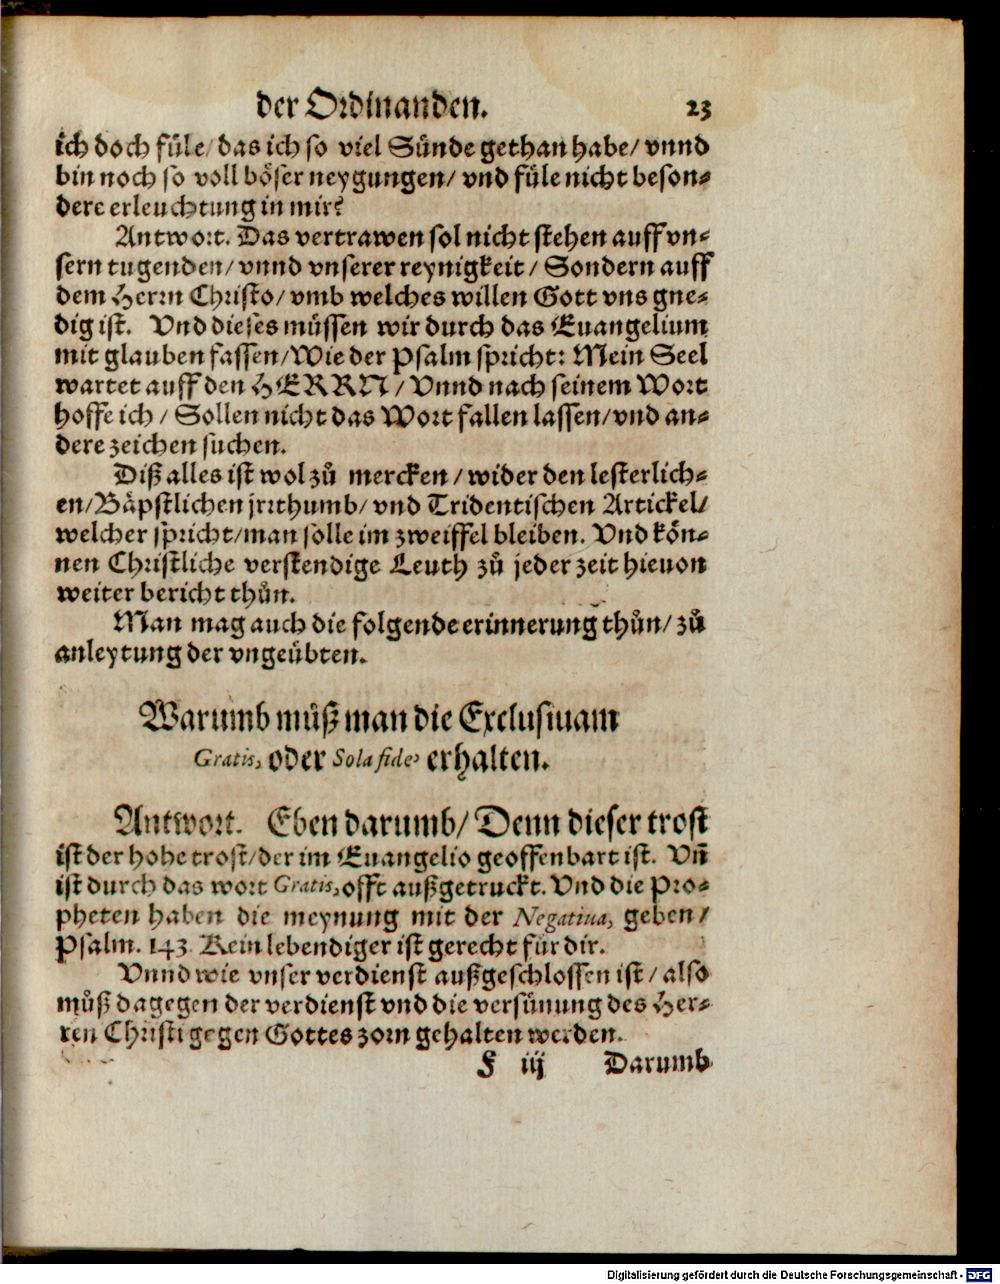 der Ordinanden. 23
ich doch füle/ das ich so viel Sünde gethan habe/ vnnd
bin noch so voll böser neygungen/ vnd füle nicht beson⸗
dere erleuchtung in mir?
Antwort. Das vertrawen sol nicht stehen auff vn⸗
sern tugenden/ vnnd vnserer reynigkeit/ Sondern auff
dem Herrn Christo/ vmb welches willen Gott vns gne⸗
dig ist. Vnd dieses müssen wir durch das Euangelium
mit glauben fassen/ Wie der Psalm spricht: Mein Seel
wartet auff den HERRN/ Vnnd nach seinem Wort
hoffe ich/ Sollen nicht das Wort fallen lassen/ vnd an⸗
dere zeichen suchen.
Diß alles ist wol zů mercken/ wider den lesterlich⸗
en/ Bäpstlichen jrrthumb/ vnd Tridentischen Artickel/
welcher spricht/ man solle im zweiffel bleiben. Vnd kön⸗
nen Christliche verstendige Leuth zů jeder zeit hieuon
weiter bericht thůn.
Man mag auch die folgende erinnerung thůn/ zů
anleytung der vngeübten.
Warumb můß man die Exclusiuam
Gratis, oder Sola fide, erhalten.
Antwort. Eben darumb/ Denn dieser trost
ist der hohe trost/ der im Euangelio geoffenbart ist. Vñ
ist durch das wort Gratis, offt außgetruckt. Vnd die Pro⸗
pheten haben die meynung mit der Negatiua, geben/
Psalm. 143 Kein lebendiger ist gerecht für dir.
Vnnd wie vnser verdienst außgeschlossen ist/ also
můß dagegen der verdienst vnd die versünung des Her⸗
ren Christi gegen Gottes zorn gehalten werden.
F iij Darumb
Digitalisierung gefördert durch die Deutsche Forschungsgemeinschaft - DFG